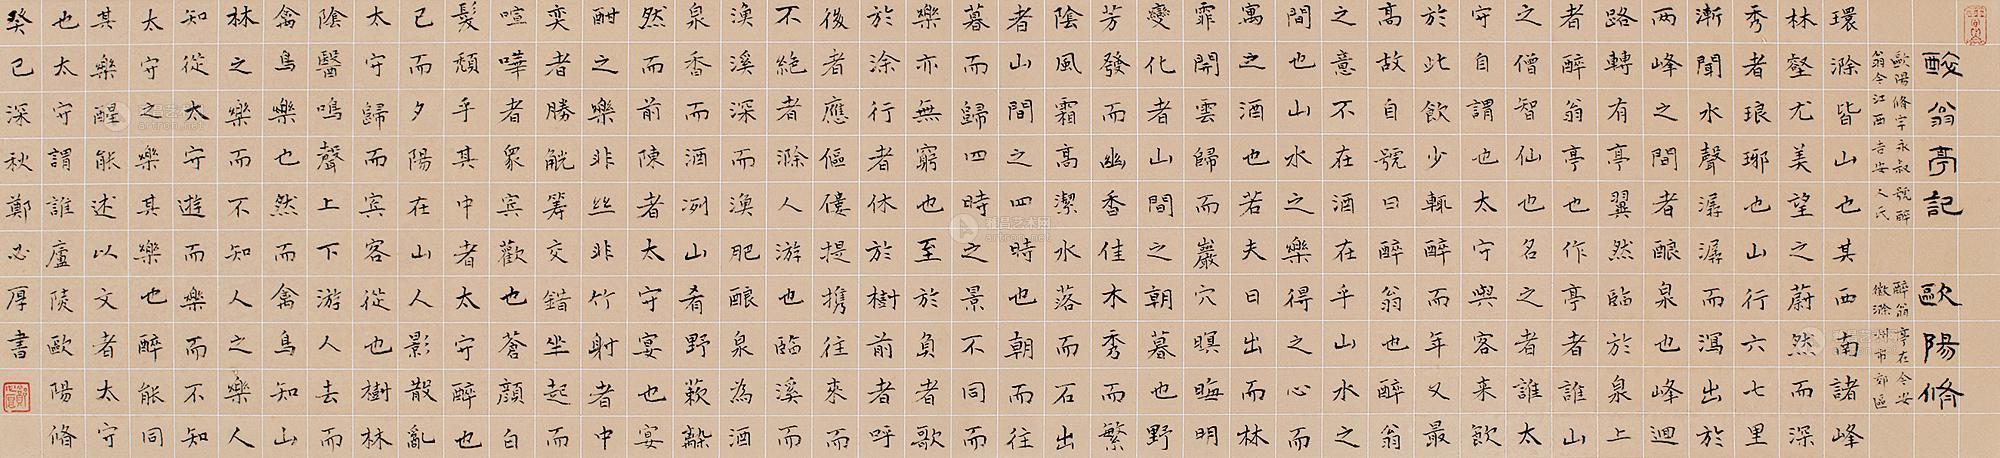 醉翁亭記 歐陽脩
歐陽脩字永叔號醉
翁今江西吉安人氏
醉翁亭在今安
徽滁州市郊區
環滁皆山也其西南諸峰
林壑尤美望之蔚然而深
秀者琅琊也山行六七里
漸聞水聲潺潺而瀉出於
兩峰之間者釀泉也峰迴
路轉有亭翼然臨於泉上
者醉翁亭也作亭者誰山
之僧智仙也名之者誰太
守自謂也太守與客来飲
於此飲少輒醉而年又最
高故自號曰醉翁也醉翁
之意不在酒在乎山水之
間也山水之樂得之心而
寓之酒也若夫日出而林
霏開雲歸而巖穴暝晦明
變化者山間之朝暮也野
芳發而幽香佳木秀而繁
陰風霜高潔水落而石出
者山間之四時也朝而往
暮而歸四時之景不同而
樂亦無窮也至於負者歌
於塗行者休於樹前者呼
後者應傴僂提携往來而
不絕者滁人游也臨溪而
漁溪深而漁肥釀泉為酒
泉香而酒洌山肴野蔌雜
然而前陳者太守宴也宴
酣之樂非絲非竹射者中
奕者勝觥籌交錯坐起而
喧嘩者衆賓歡也蒼顏白
髮頹乎其中者太守醉也
已而夕陽在山人影散亂
太守歸而賓客從也樹林
陰翳鳴聲上下游人去而
禽鳥樂也然而禽鳥知山
林之樂而不知人之樂人
知從太守遊而樂而不知
太守之樂其樂也醉能同
其樂醒能述以文者太守
也太守謂誰廬陵歐陽脩
癸已深秋鄭必厚書
雅昌艺术网
artron.net